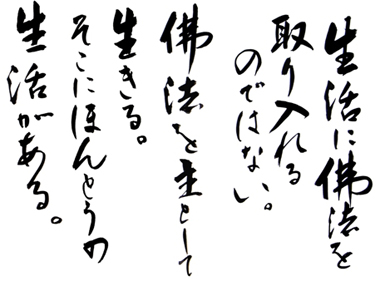 生活に佛法を
取り入れる
のではない。
佛法を主として
生きる。
そこにほんとうの
生活がある。